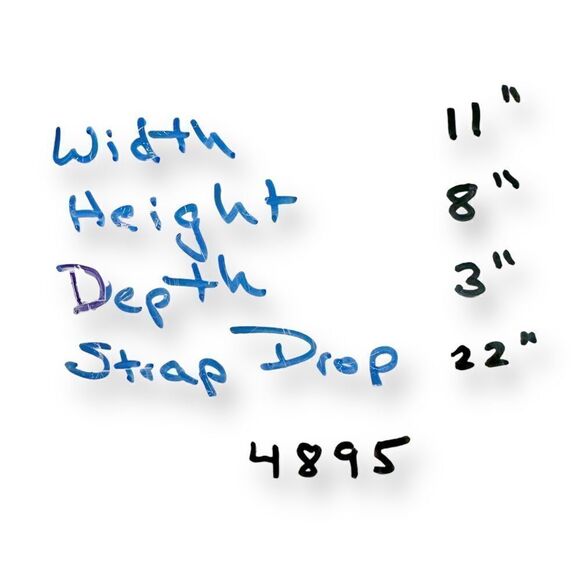 Width 11"
Height 8"
Depth 3"
Strap Drop 22"
4895